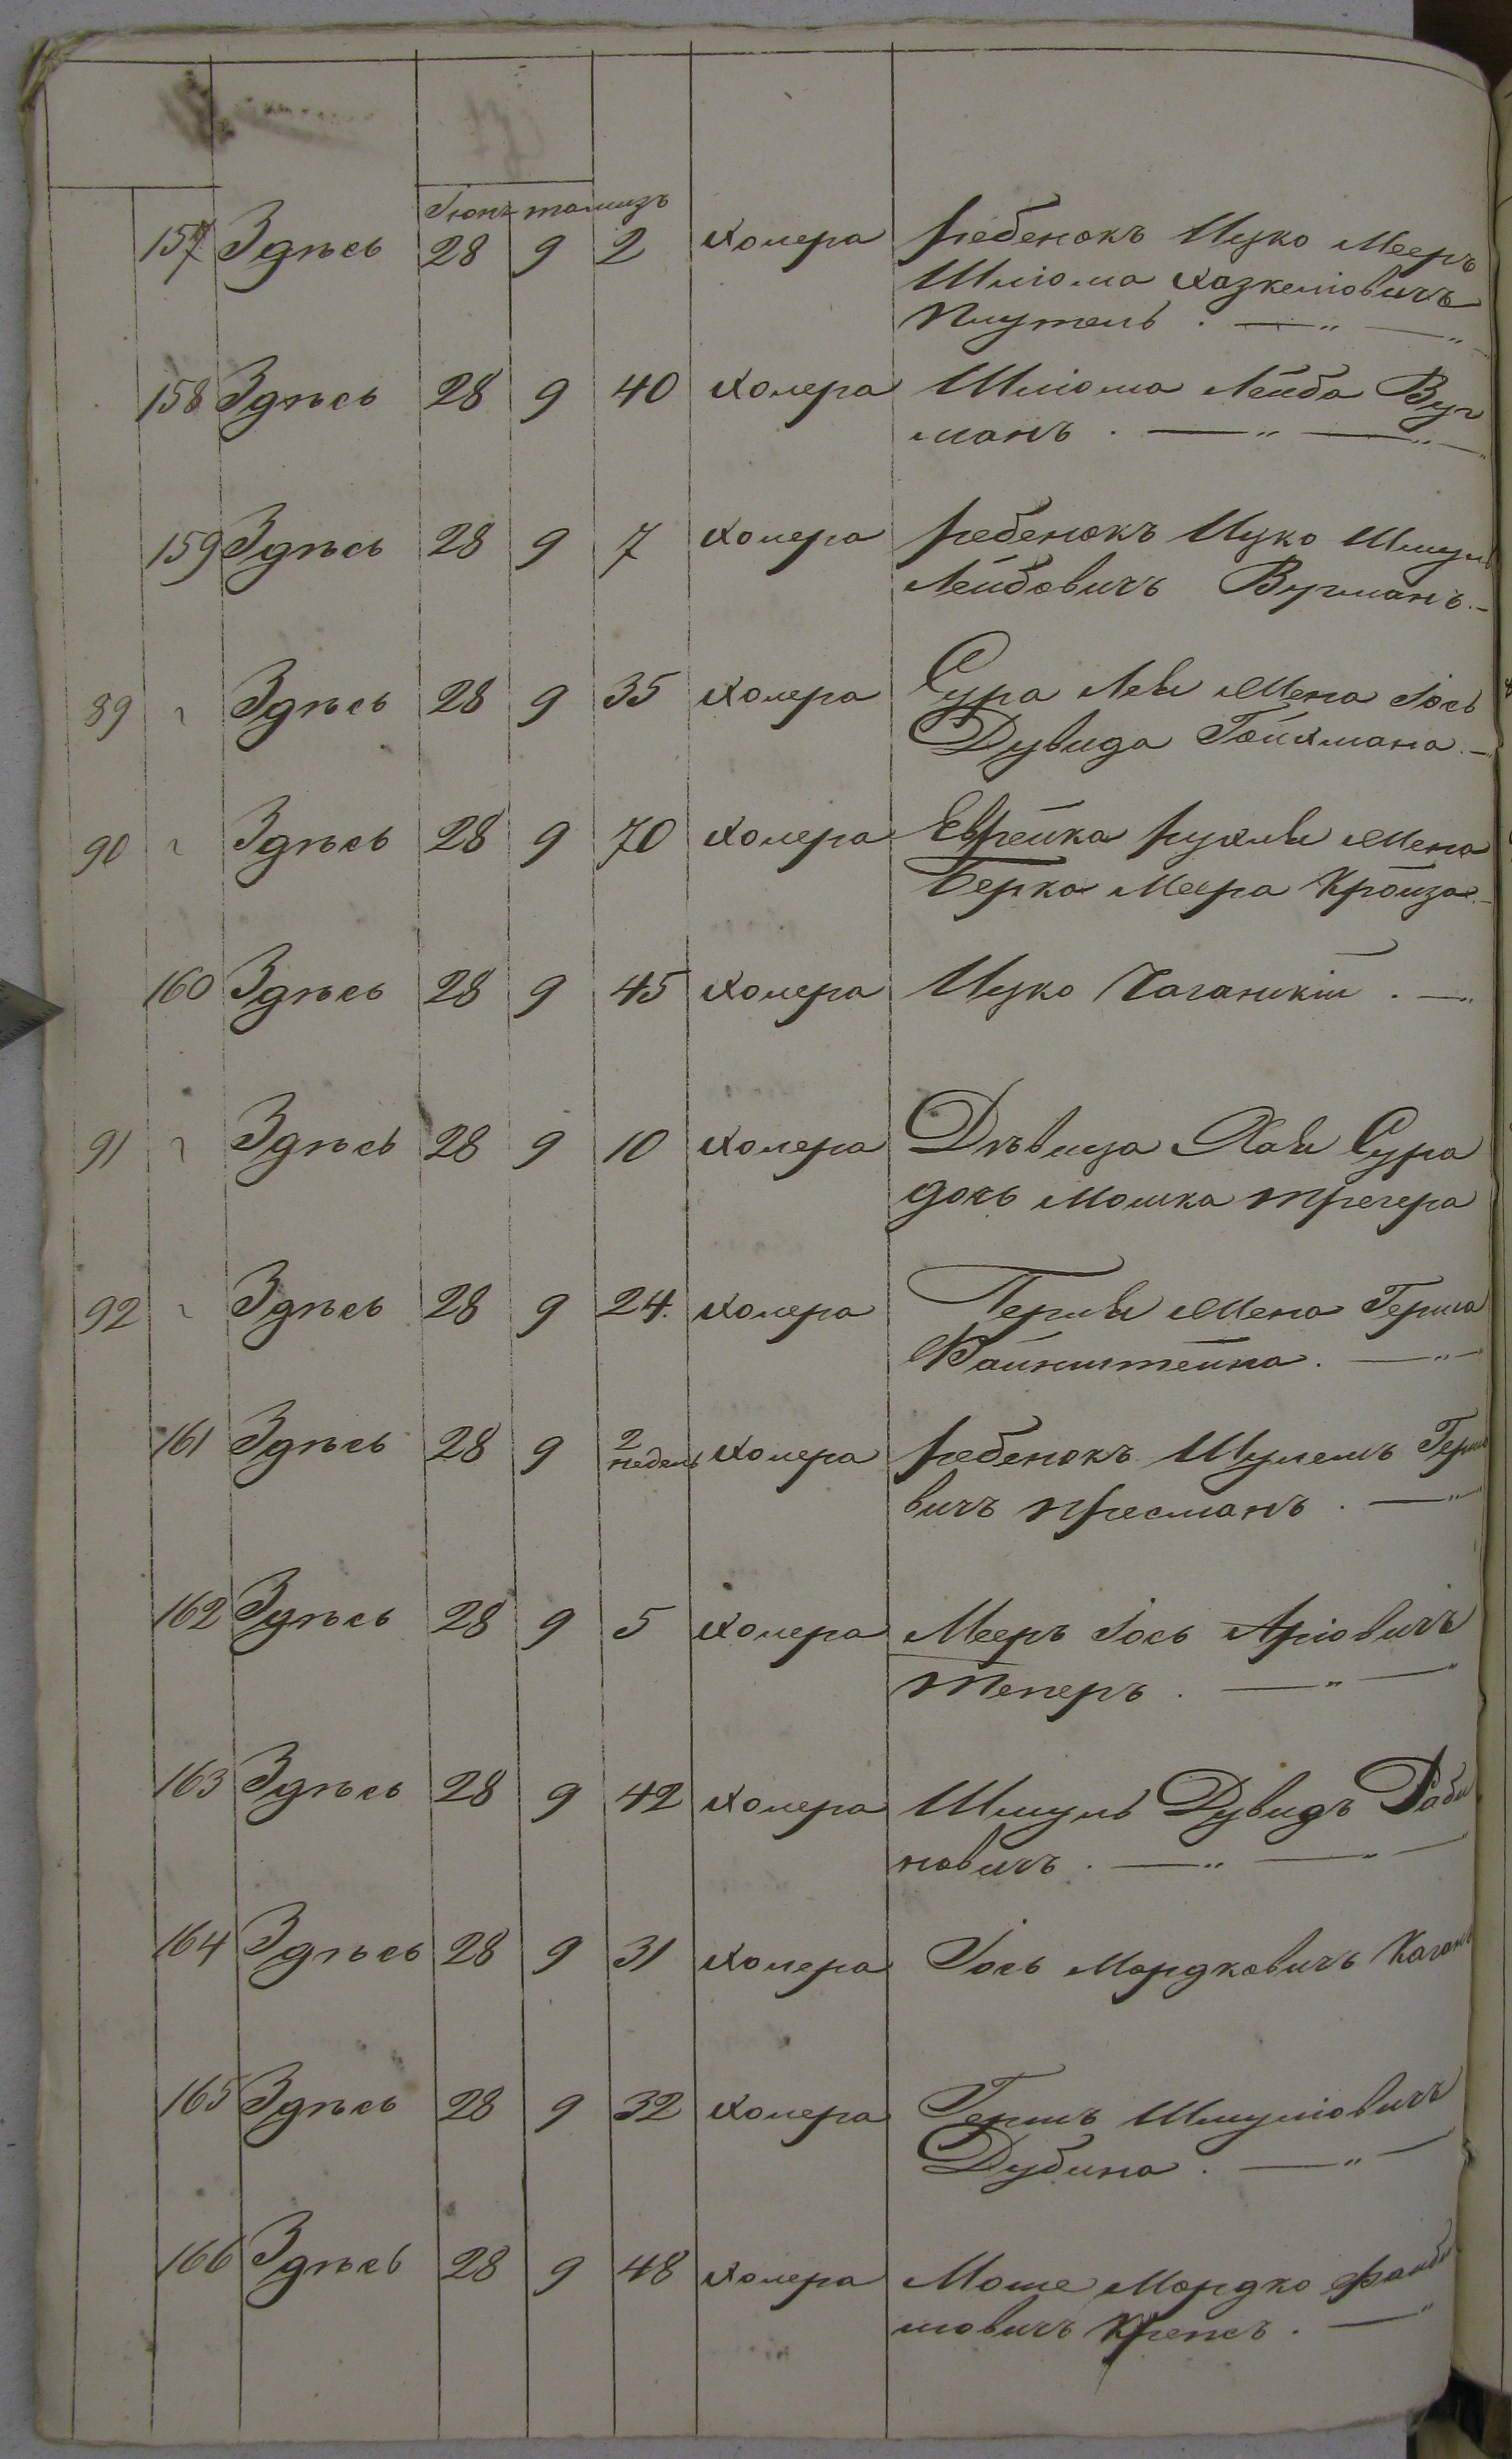 Іюнь тамизъ
157 Здѣсь 28 9 2 холера ребенокъ Ицко Мееръ
Шліома Хазкеліовичъ
Плутель . — " — "
158 Здѣсь 28 9 40 холера Шліома Лейба Вуг
манъ . — " — " —
159 Здѣсь 28 9 7 холера ребенокъ Ицко Шмуль
Лейбовичъ Вугманъ . —
89 Здѣсь 28 9 35 холера Сура Леи жена Іось
Дувида Гойхмана . —
90 Здѣсь 28 9 70 холера Еврейка рухли жена
Берка Меера Кройза . —
160 Здѣсь 28 9 45 холера Ицко Чаганскій . — "
91 Здѣсь 28 9 10 холера Дѣвица Хаи Сура
дочь Мошка трегера
92 Здѣсь 28 9 24. холера Перли жена Герша
Вайнштейна . — " —
161 Здѣсь 28 9 2 недель холера ребенокъ Шулемъ Герш
вичъ пресманъ . — "
162 Здѣсь 28 9 5 холера Мееръ Іось Аріовичъ
теперъ . — " — "
163 Здѣсь 28 9 42 холера Шмуль Дувидъ Раби
новичъ . — " — " —
164 Здѣсь 28 9 31 холера Іось Мордковичъ Каганъ
165 Здѣсь 28 9 32 холера Гершъ Шмуліовичъ
Дубина . — " —
166 Здѣсь 28 9 48 холера Моше Мордко
шовичъ Крепсъ . — "